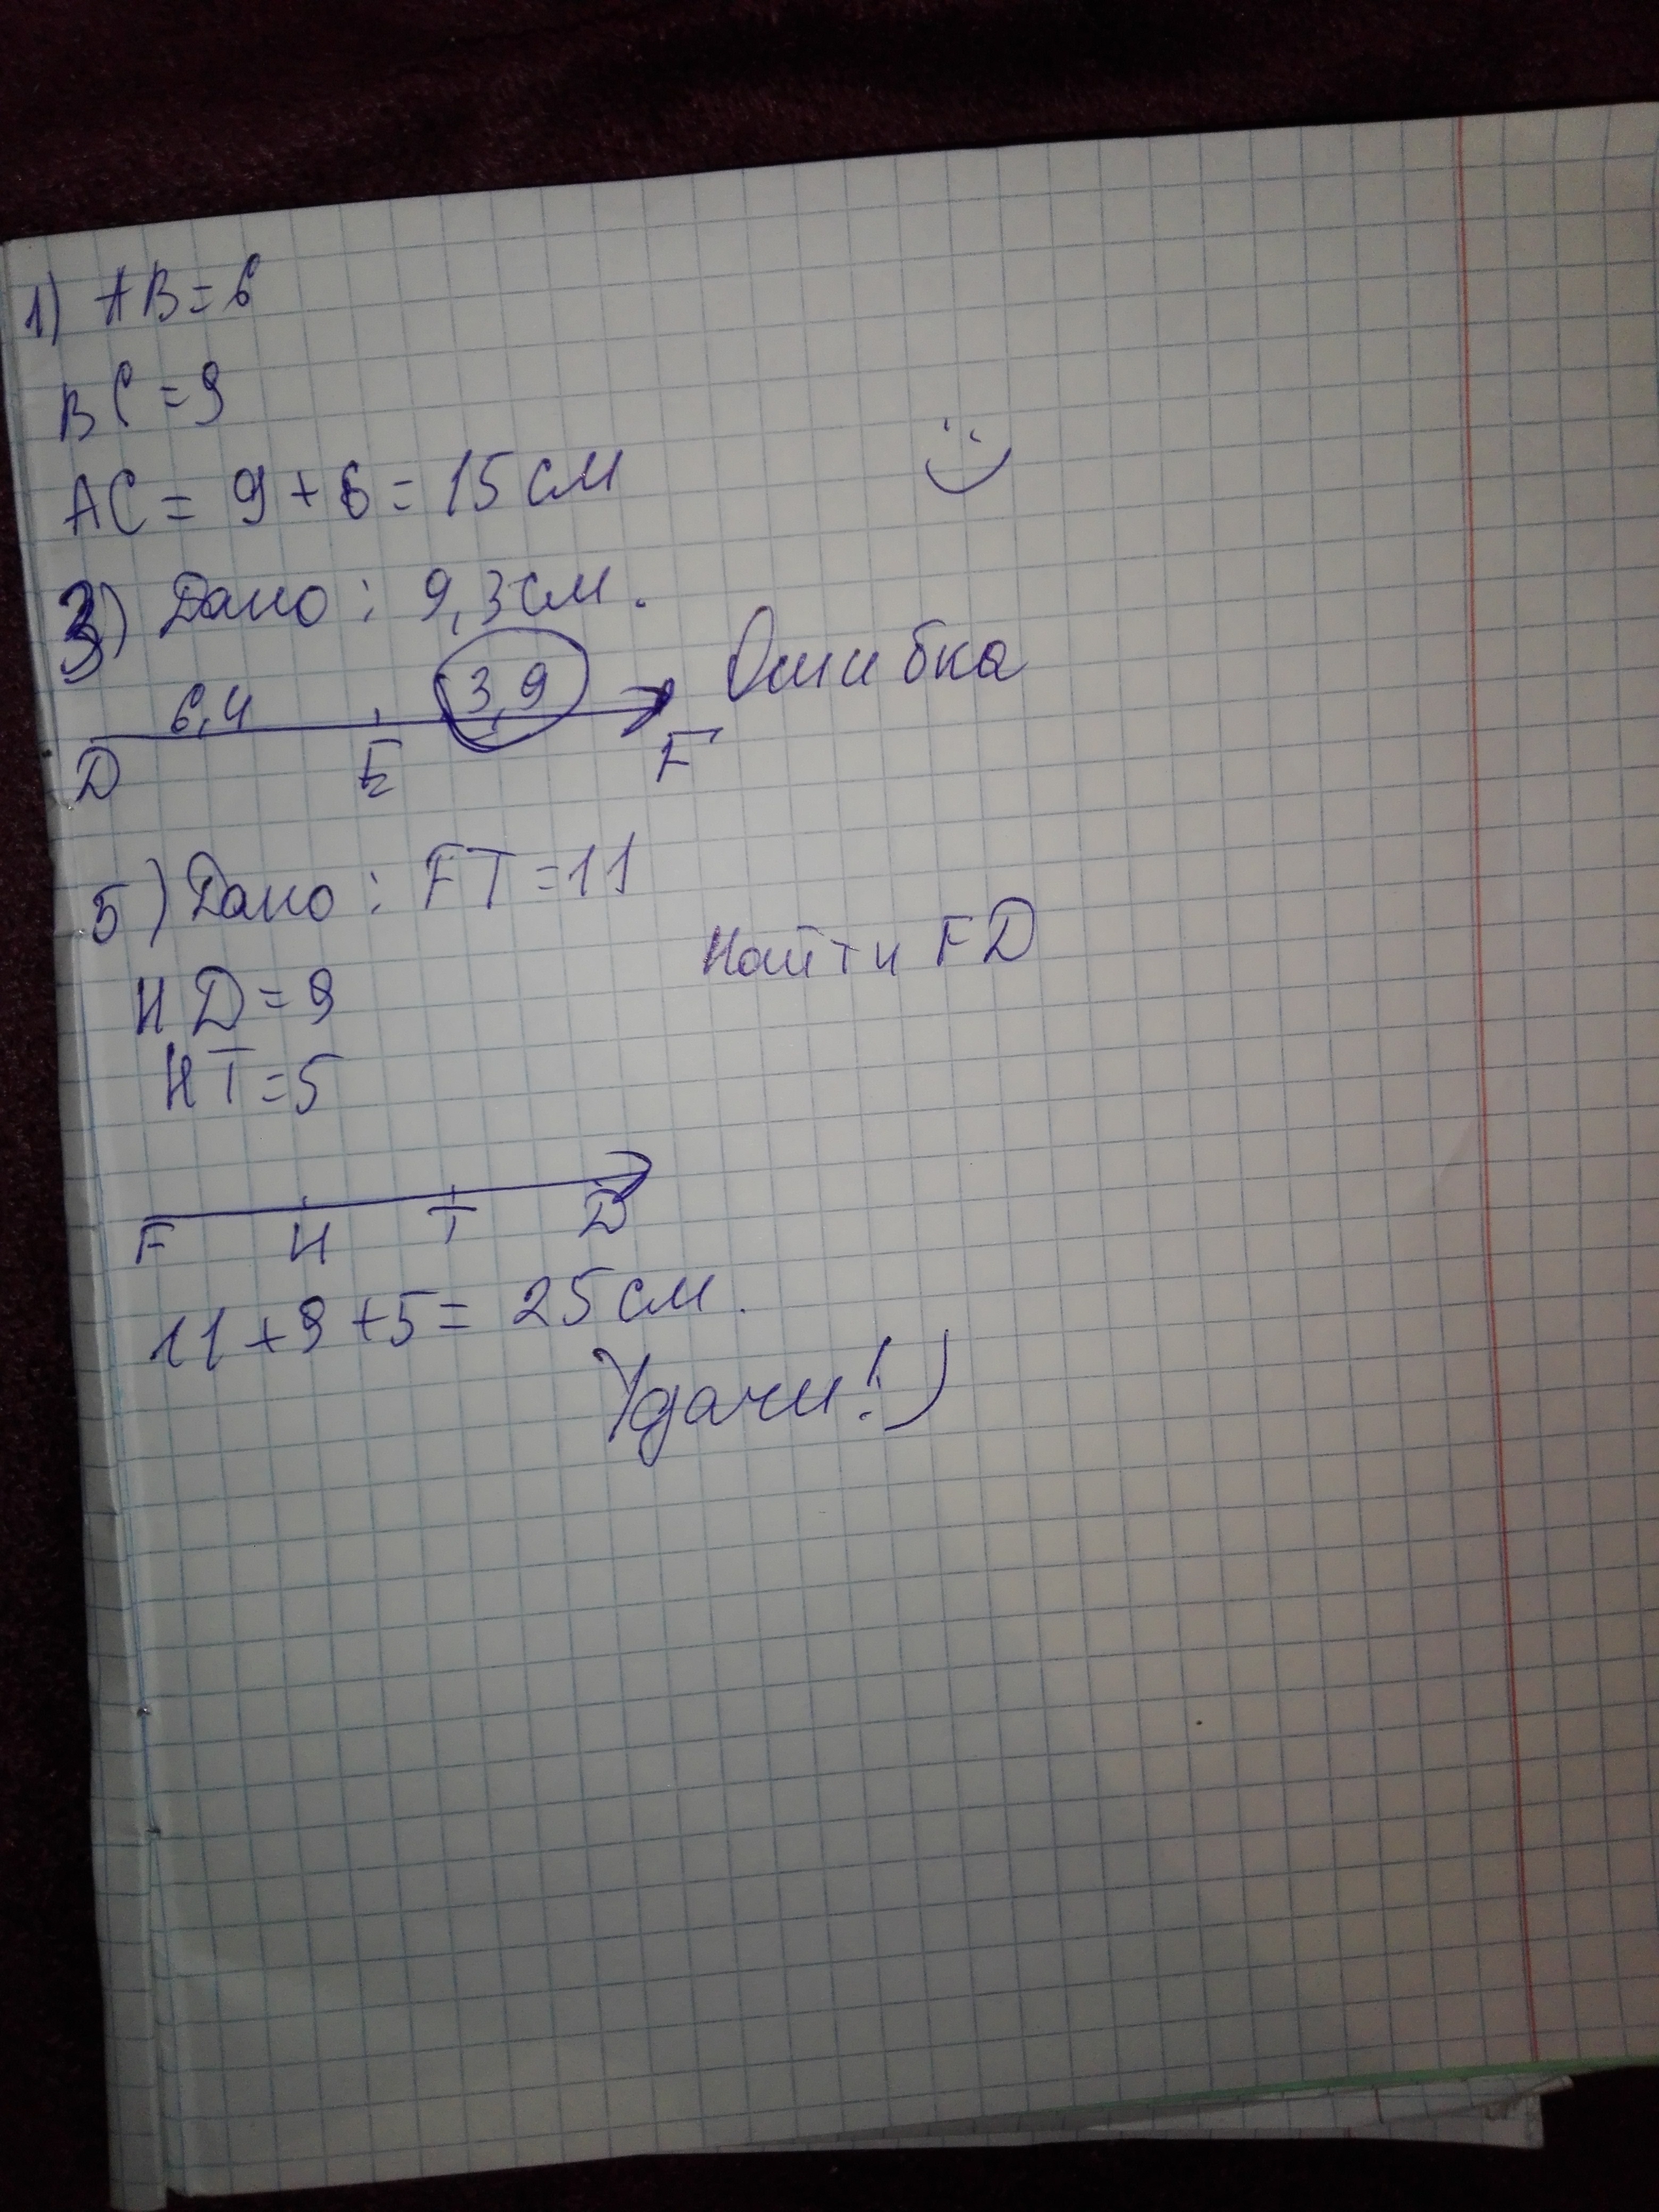 1) AB=6
BC=9
AC = 9+6= 15 см
3) Дано: 9,3 см.
6,4 3,9 Ошибка
D E F
5) Дано: FT=11
Найти FD
HD=9
HT=5
F H T D
11+9+5= 25 см.
Удачи!)